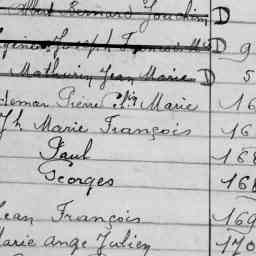 Albert Bernard Joachim D
Joseph François Marie D 9
Mathurin Jean Marie D 5
Pierre Marie 16
Jh Marie François 16
Paul 168
Georges 168
Jean François 169
Marie Ange Julien 170